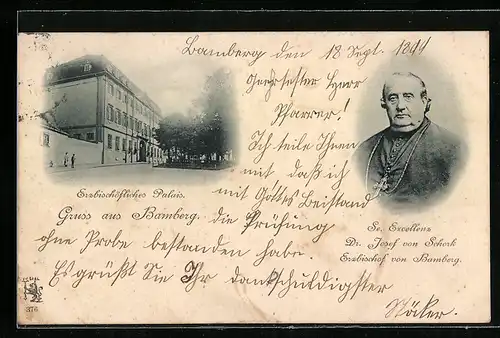 Bamberg den 18 Sept. 1899
Geehrtester Herr
Pfarrer!
Ich teile Ihnen
mit daß ich
mit Gottes Beistand
die Prüfung
ohne Probe bestanden habe.
Es grüßt Sie Ihr dankschuldigster
Stöcker.
Erzbischöfliches Palais.
Gruss aus Bamberg.
Se. Excellenz
Dr. Josef von Schork
Erzbischof von Bamberg.
376